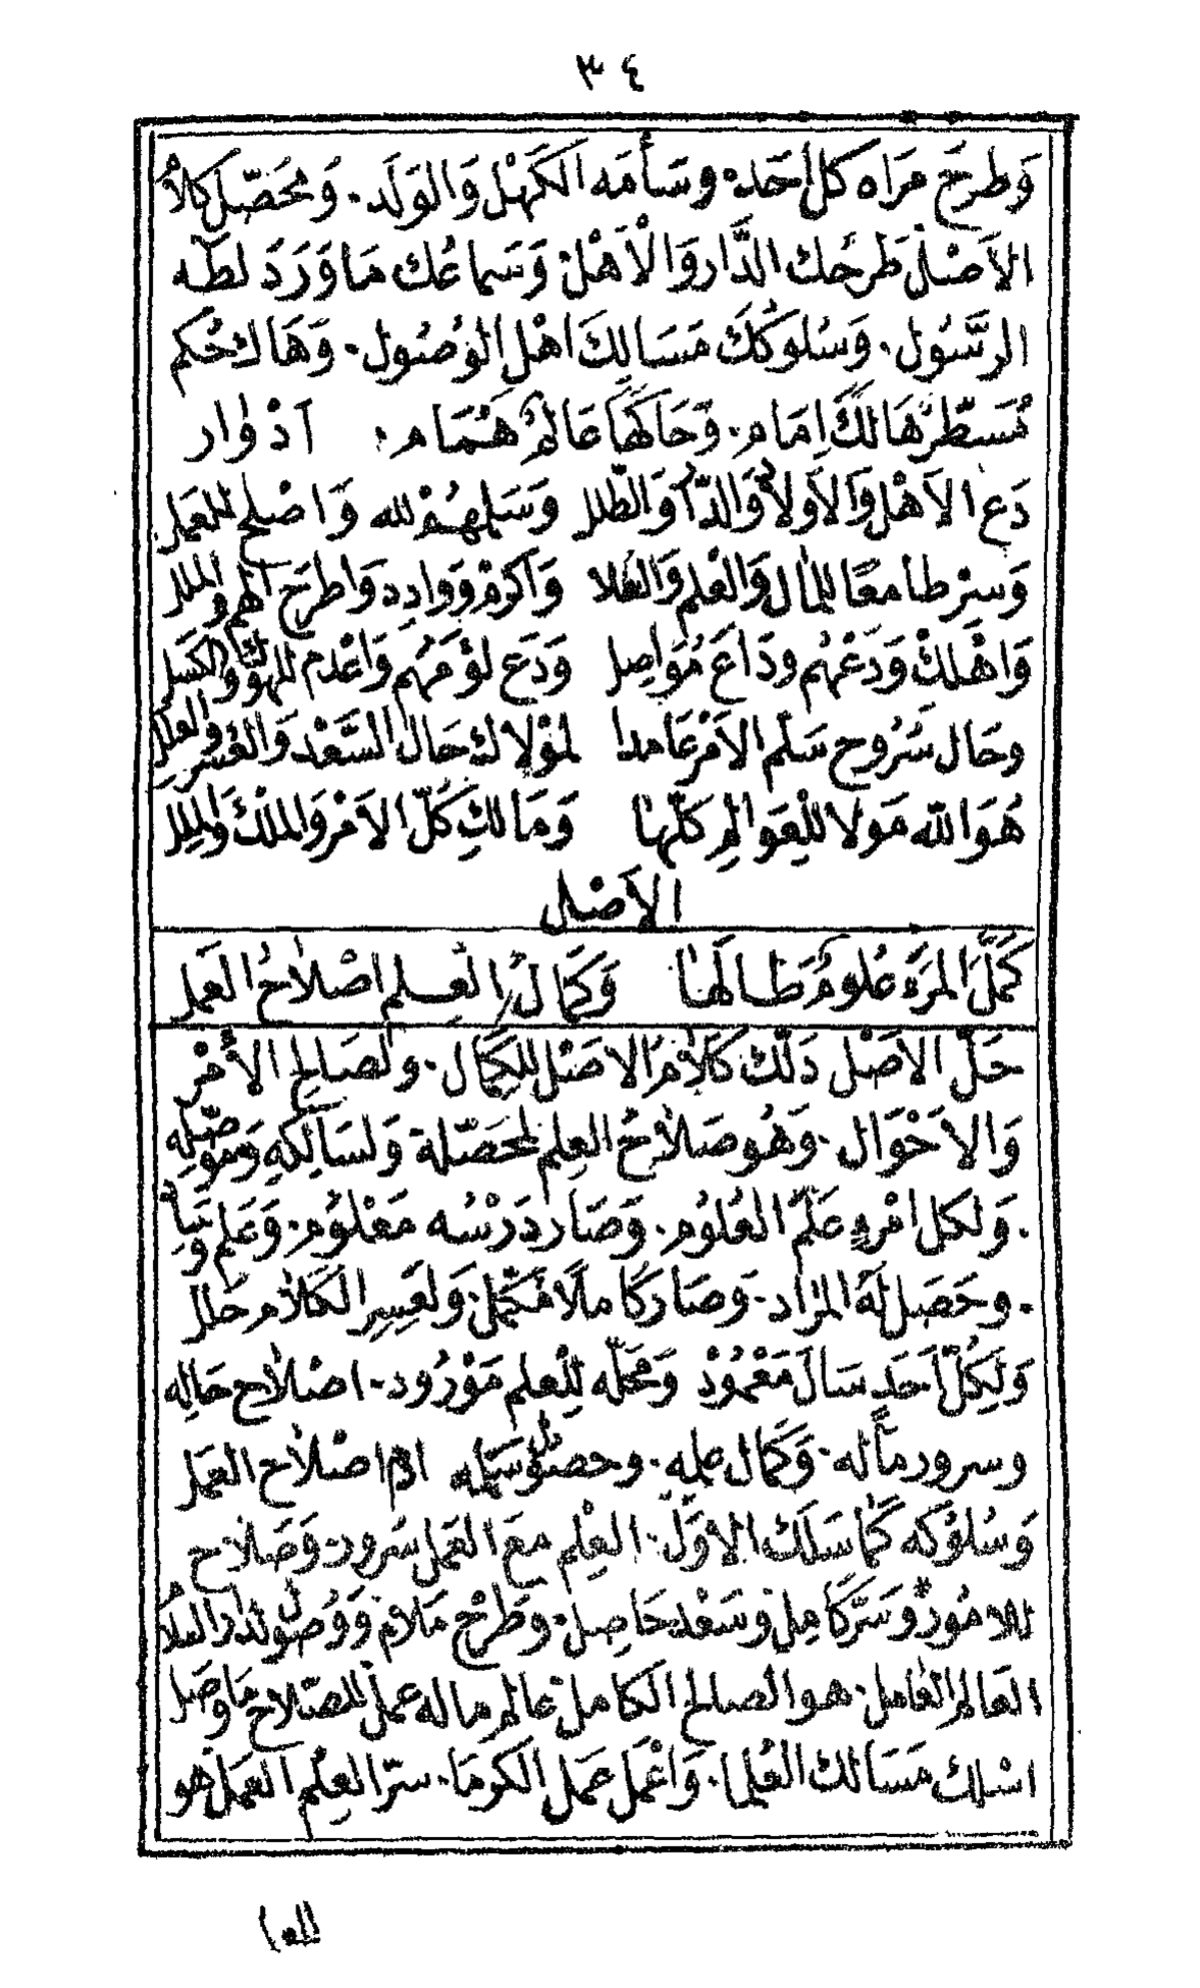 ٣٤
وَطَرحَ مَرَاه كل أحَد. وسَأمَه الكَهْل وَالوَلَد. وَمحَصّل كلاَم
الاَصْل طَرحُك الدَّار وَالْاَهْل. وَسَماعُك مَا وَرَدَ لطٰه
الرَّسُول. وَسُلوكُكَ مَسَالِكَ اهْل الوُصُول. وَهَاك حُكم
مُسَطّرهَا لكَ اِمَام. وَحَاكَهَا عَالمٌ هُمَام. اَدْوٰار
دَع الاَهْل وَالاَولاَد وَالدَّار وَالطّلل وَسَلّمهُمْ لله وَاصْلح للعَمل
وَسر طامعًا للمال وَالعْلم وَالعُلا وَاكرمْ وَوَادِد وَاطرَح الهم والملل
وَاهْلكْ وَدَعْهُم ودَاعَ مُوَاصِل وَدَع لوْمَهُم وَاعْدم للهو والكسَل
وحَال سُرُوح سَلّم الاَمْر عَامدا لموْلاك حَال السَّعْد وَالعُسر والعلل
هُوَ الله مَولا للْعَوالمِ كلّها وَمَالكِ كُلّ الاَمْر وَالملْك وَالملل
الاَصْل
كَمَّل المرَءَ عُلومٌ طَالَها وَكَمَال العِلم اصْلاٰحُ العَمل
حَلّ الاَصْل دَلّك كَلاٰمُ الاصْل للكَمال. ولصَالح الأمْر
وَالاَحْوَال. وَهُو صَلاٰحُ العِلم لمحَصّلة وَلسَالِكِهِ وَموَصّله
. وَلكل امْرءٍ عَلمَ العُلوُم. وَصَار دَرْسُه مَعْلوُم. وَعَلم
. وحَصَل لَهُ المرٰاد. وَصَار كَاملًا مكَمّل. وَلعَسِر الكَلاٰم حَلل
وَلِكُلّ اَحَدٍ سَالَ مَعْمُودْ وَمحَلّه للْعِلم مَوْرُود. اصْلاٰح حَالِه
وسرور مآله. وَكَمال علمه. وحصول اصْلاٰح العَمَل
وَسُلوُكه كَمَا سَلَك الاوَّل. العِلْم معَ العَمل سُرور. وَصَلاٰح
للامُورْ وَسَرّ كَامِل وَسَعْد حَاصِل. وطَرْح مَلاٰم وَوُصول لدار السلاٰم
العَالم العٰامل. هو الصالح الكَامل. عَالم ماله عمل للصّلاح مَا وصَل
اسْلك مَسَالك العُلما. وَاعْمَل عَمل الكرمَا. سرّ العِلم العَمَل هو